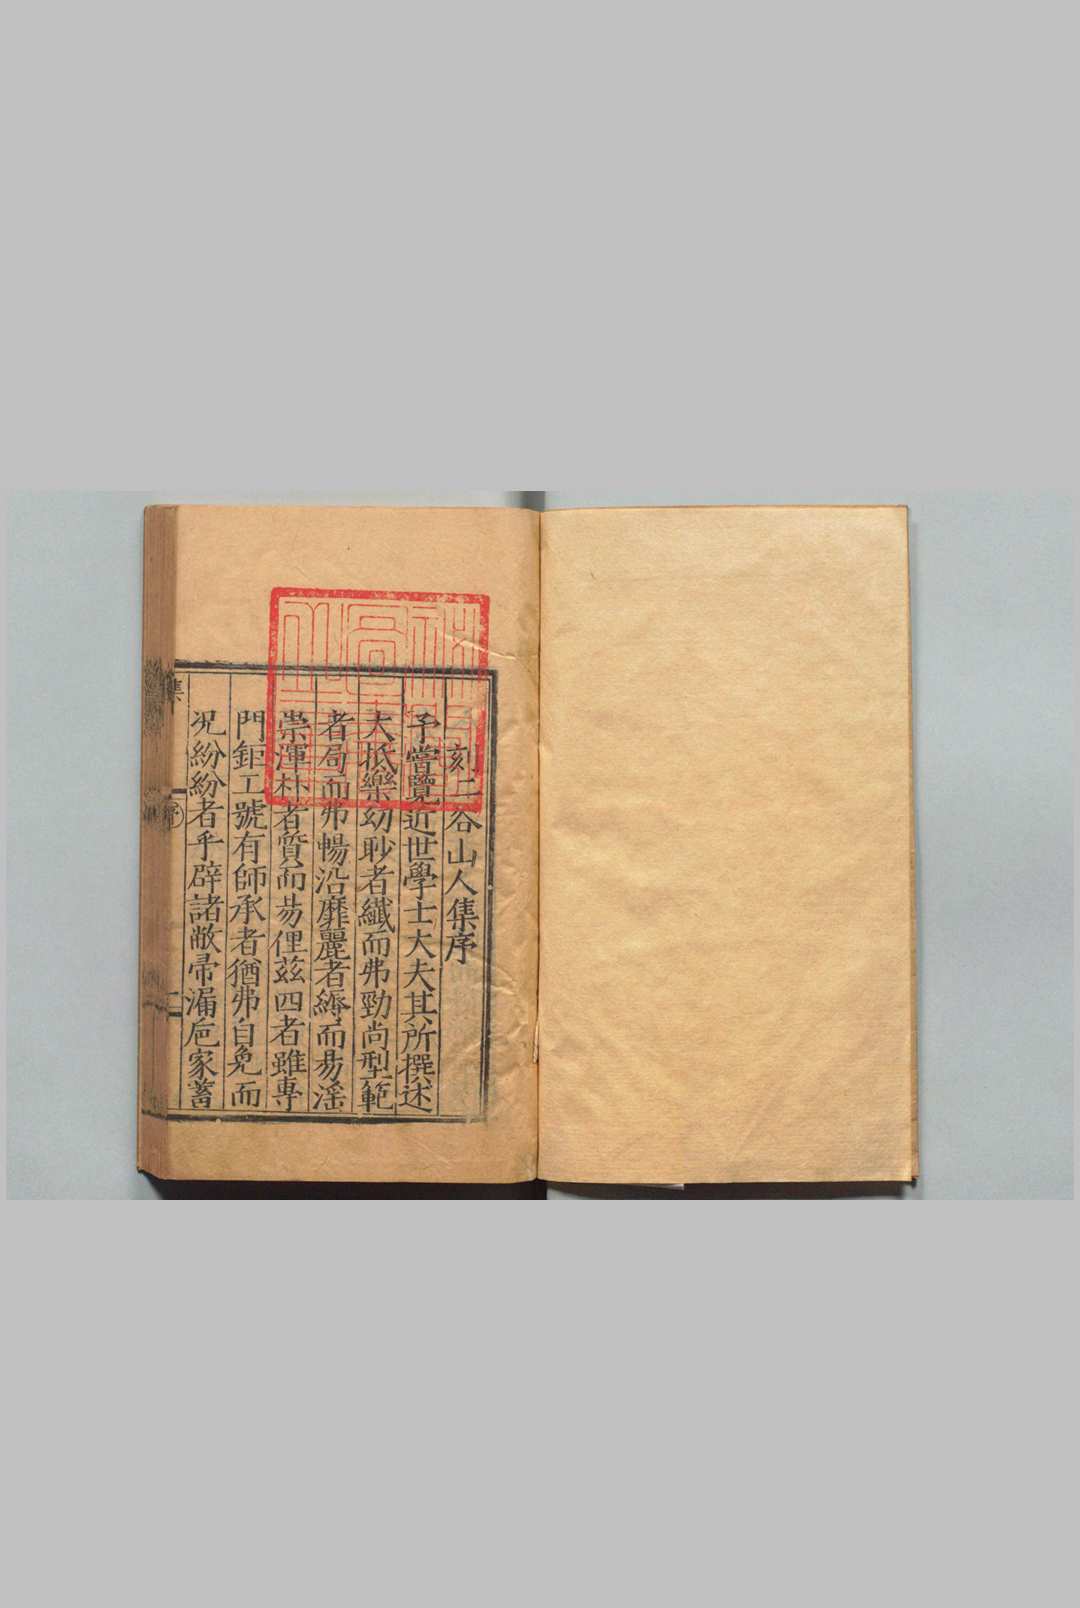 刻二谷山人集序
予嘗覽近世學士大夫其所撰述
大抵樂幼眇者纖而弗勁尚型範
者局而弗暢沿靡麗者縟而易滛
崇渾朴者質而易俚茲四者雖專
門鉅工號有師承者猶弗自免而
况紛紛者乎辟諸敝帚漏巵家蓄
集